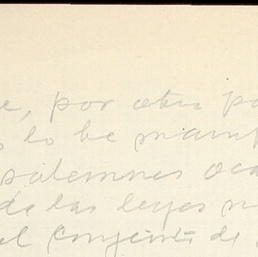 e, por otra pa
s lo he manif
solemnes oca
de las leyes n
el conjunto de